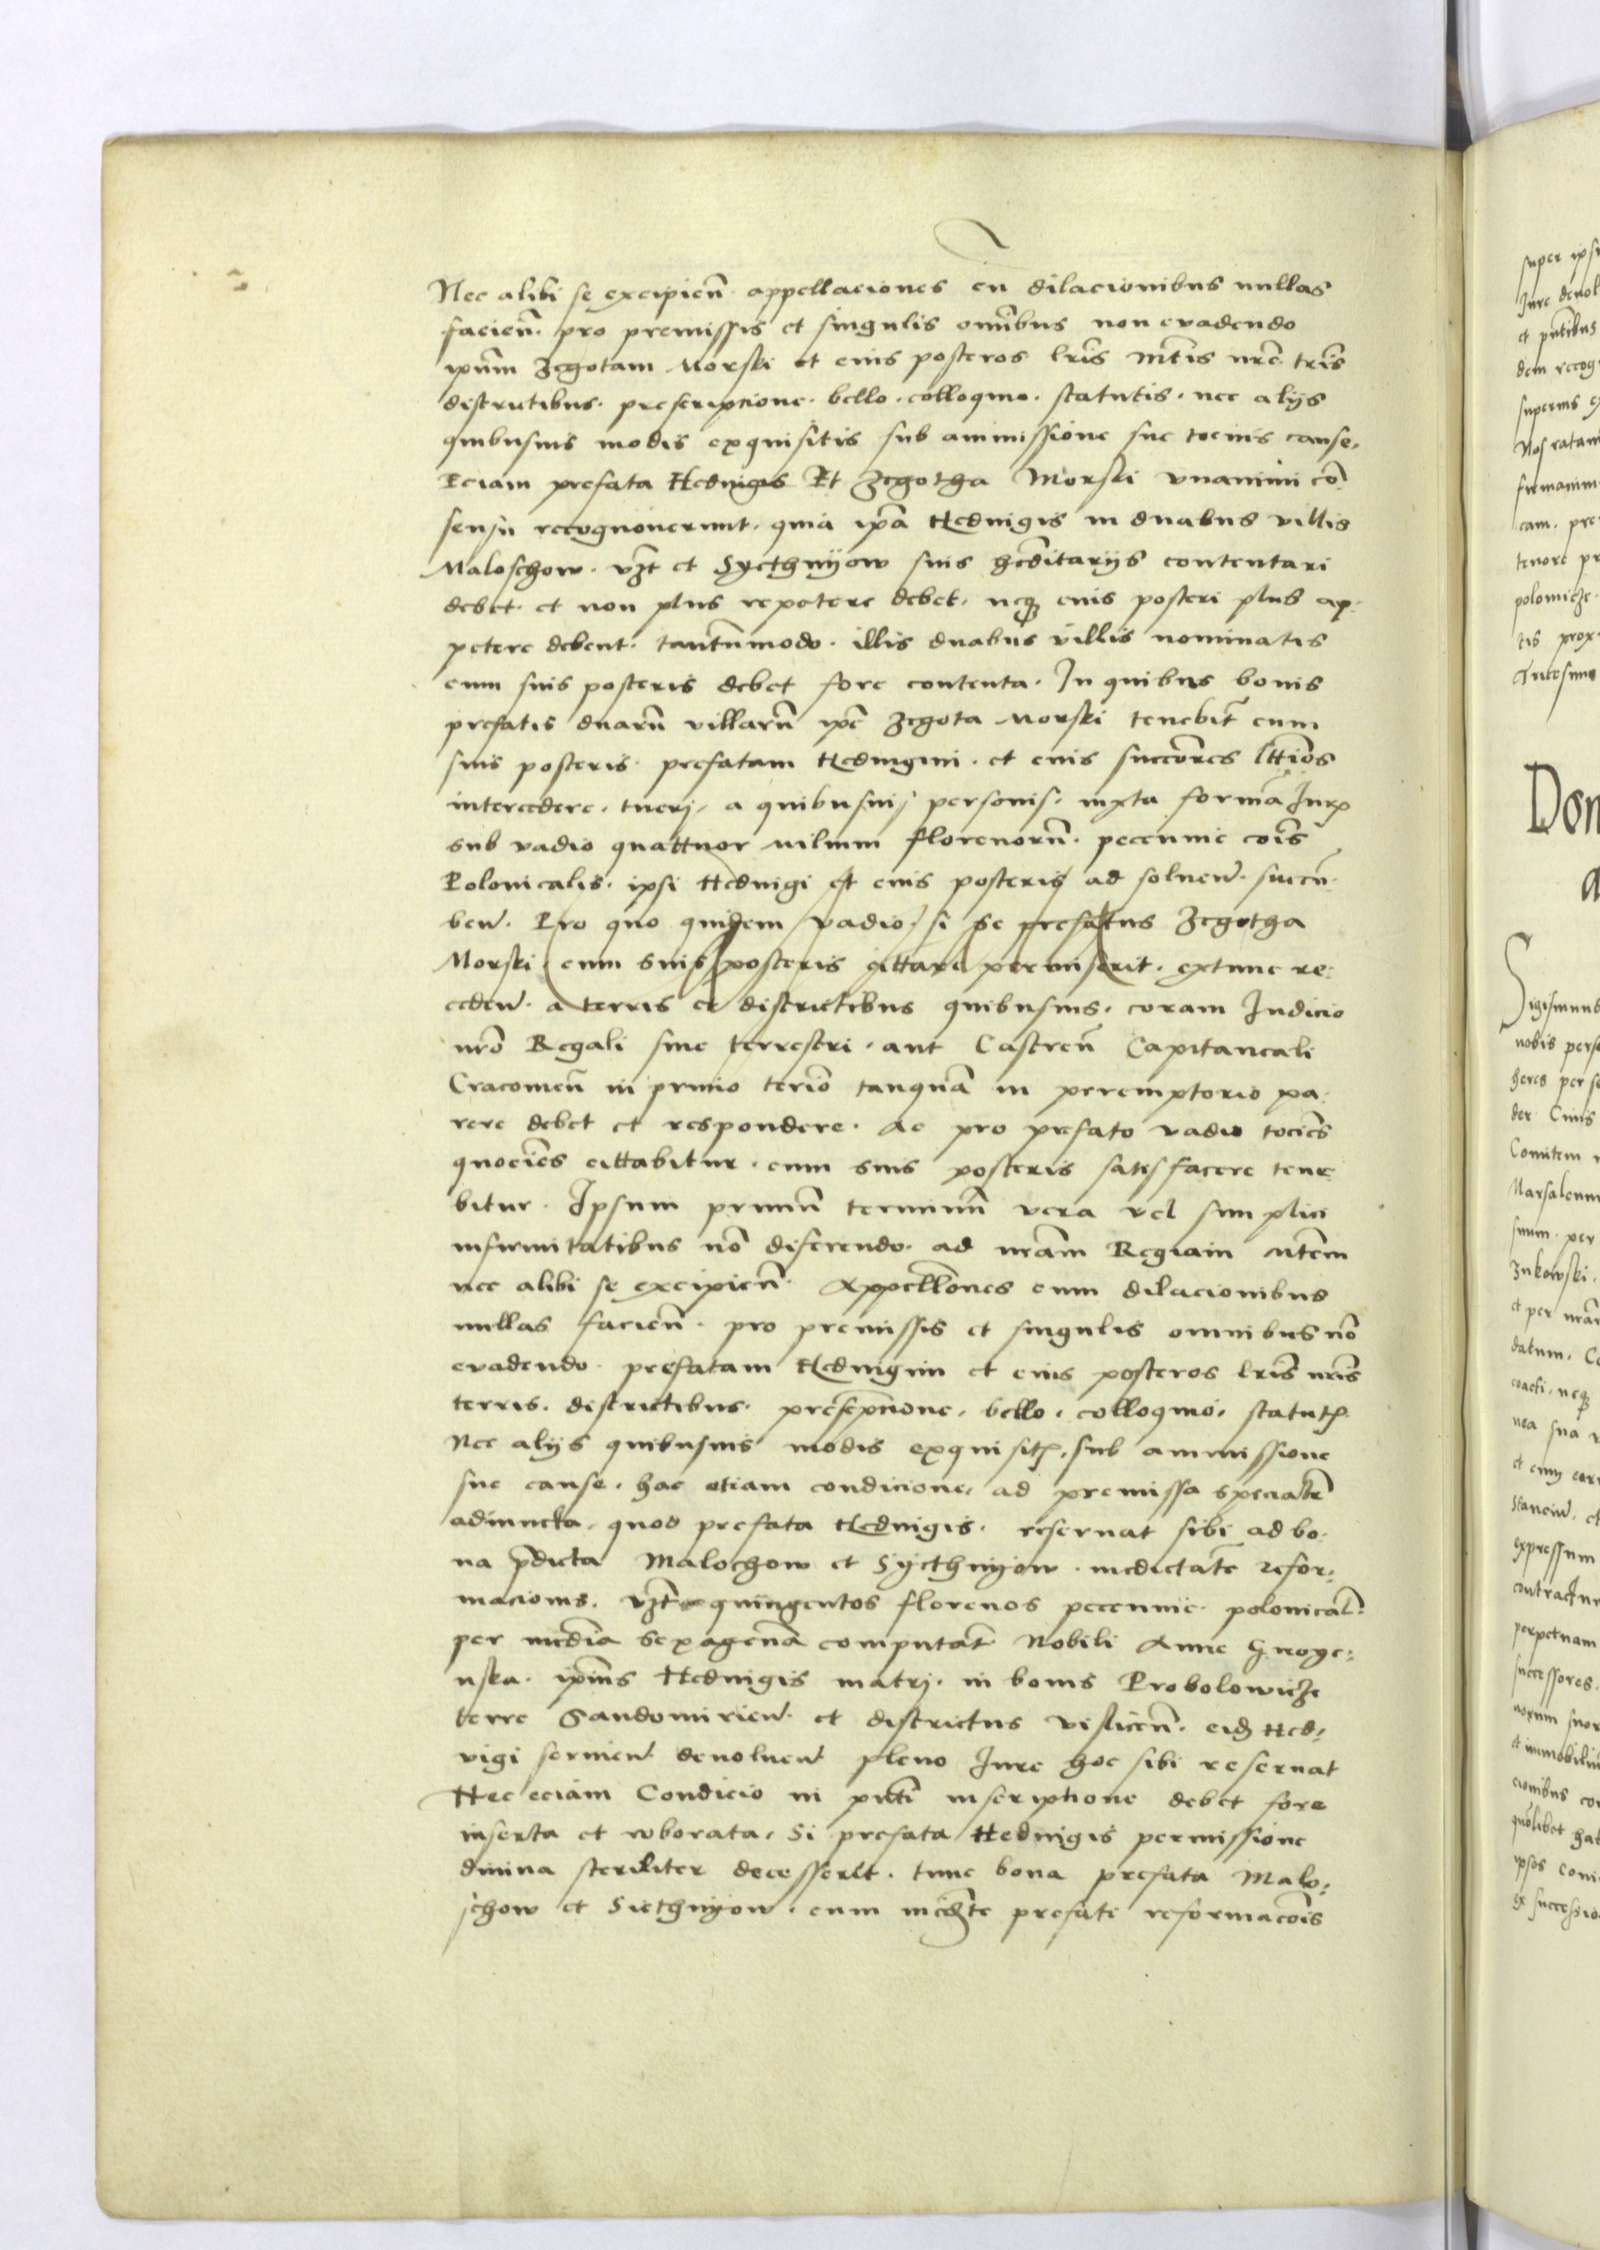 Nec alibi se excipien̄. appellaciones cu̅ dilacionibus nullas
facien̄. pro premissis et singulis omībus non evadendo
ip̄um Zegotam Morski et eius posteros lrīs Mtīs nrē trīs
districtibus. prescripcione. bello. colloquio. statutis. nec alijs
quibusuis modis exquisitis sub ammissione sue tocius cause.
Eciam prefata Hedwigis Et Zegotha Morski vnanimi cō
sensu recognouerunt. quia ip̄a Hedwigis in duabus villis
Maloschow. vzt et Sycthnyow suis hēditarijs contentari
debet. et non plus repetere debet. neq̄ eius posteri plus ap-
petere debent. tantūmodo. illis duabus villis nominatis
cum suis posteris debet fore contenta. In quibus bonis
prefatis duarū villarū ip̄e Zegota Morski tenebit̄ cum
suis posteris. prefatam Hedwigim. et eius succōres lttīos
intercedere. tueri. a quibusuis personis. iuxta formā Juris
sub vadio quattuor milium florenorū. peccunie cōis
Polonicalis. ipsi Hedwigi et eius posteris ad soluen̄. succū-
ben̄. Pro quo quidem vadio. si se prefatus Zegotha
Morski cum suis posteris cittare permiserit. extunc re-
ceden̄. a terris et districtibus quibusuis. coram Judicio
nrō Regali siue terrestri. aut Castren̄ Capitaneali
Cracouien̄ in primo teriō tanquā in peremptorio pa-
rere debet et respondere. Ac pro prefato vadio tociēs
quociēs cittabitur. cum suis posteris satisfacere tene
bitur. Ipsum primū terminū vera vel simplici
infirmitatibus nō diferendo. ad nrām Regiam Mtem
nec alibi se excipien̄. Appellōnes cum dilacionibus
nullas facien̄. pro premissis et singulis omnibus nō
evadendo. prefatam Hedwigim et eius posteros lrīs nrīs
terris. districtibus. prescrip̄cione. bello. colloquio. statutis
Nec alijs quibusuis modis exquisitis. sub ammissione
sue cause. hac etiam condicione. ad premissa speciatē
adiuncta. quod prefata Hedwigis. reseruat sibi ad bo-
na p̄dicta Malochow et Sycthnyow. medietatē refor-
macionis. vzt quingentos florenos peccunie. polonical̄.
per mediā sexagenā computat̄ Nobili Anne Gnoye-
nska. ip̄ius Hedwigis matri. in bonis Probolowicze
terre Sandomirien̄. et districtus vislicen̄. eid̄ Hed-
vigi seruien̄ deuoluen̄ pleno Jure hoc sibi reseruat
Hec eciam Condicio in pn̄ti inscriptione debet fore
inserta et roborata. Si prefata Hedwigis permissione
diuina steriliter decesserit. tunc bona prefata Malo-
schow et Siethnyow. cum medi̅te prefate reformacōis